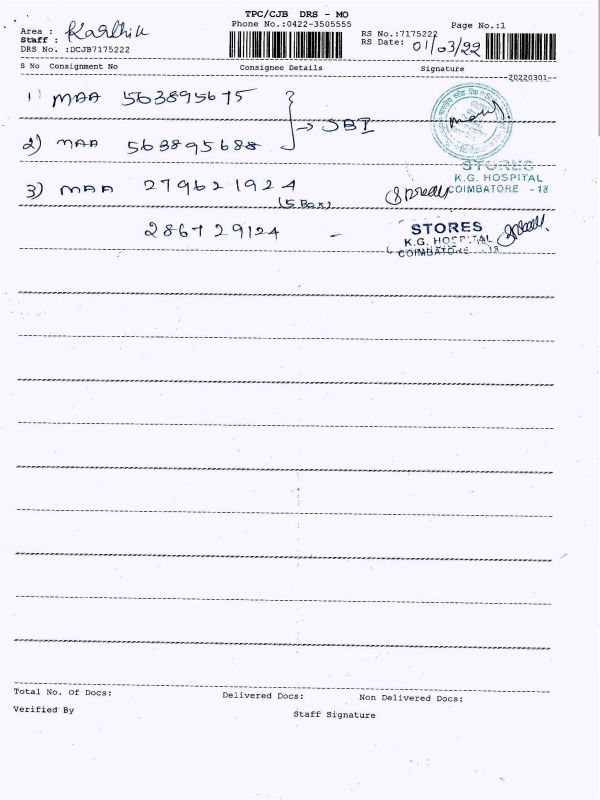 TPC/CJB DRS - MO
Phone No.:0422-3505555
Page No.:1
Area :
Staff : Karthik
RS No.:7175222
RS Date: 01/03/22
DRS No. :DCJB7175222
S No Consignment No Consignee Details Signature
20220301
1) MAA 563895675
2) MAA 563895688
} → SBI
STORES
K.G. HOSPITAL
COIMBATORE - 18
3) MAA 279621924
(5 Box)
286729124 -
STORES
K.G. HOSPITAL
COIMBATORE - 18
Total No. Of Docs: Delivered Docs: Non Delivered Docs:
Verified By Staff Signature